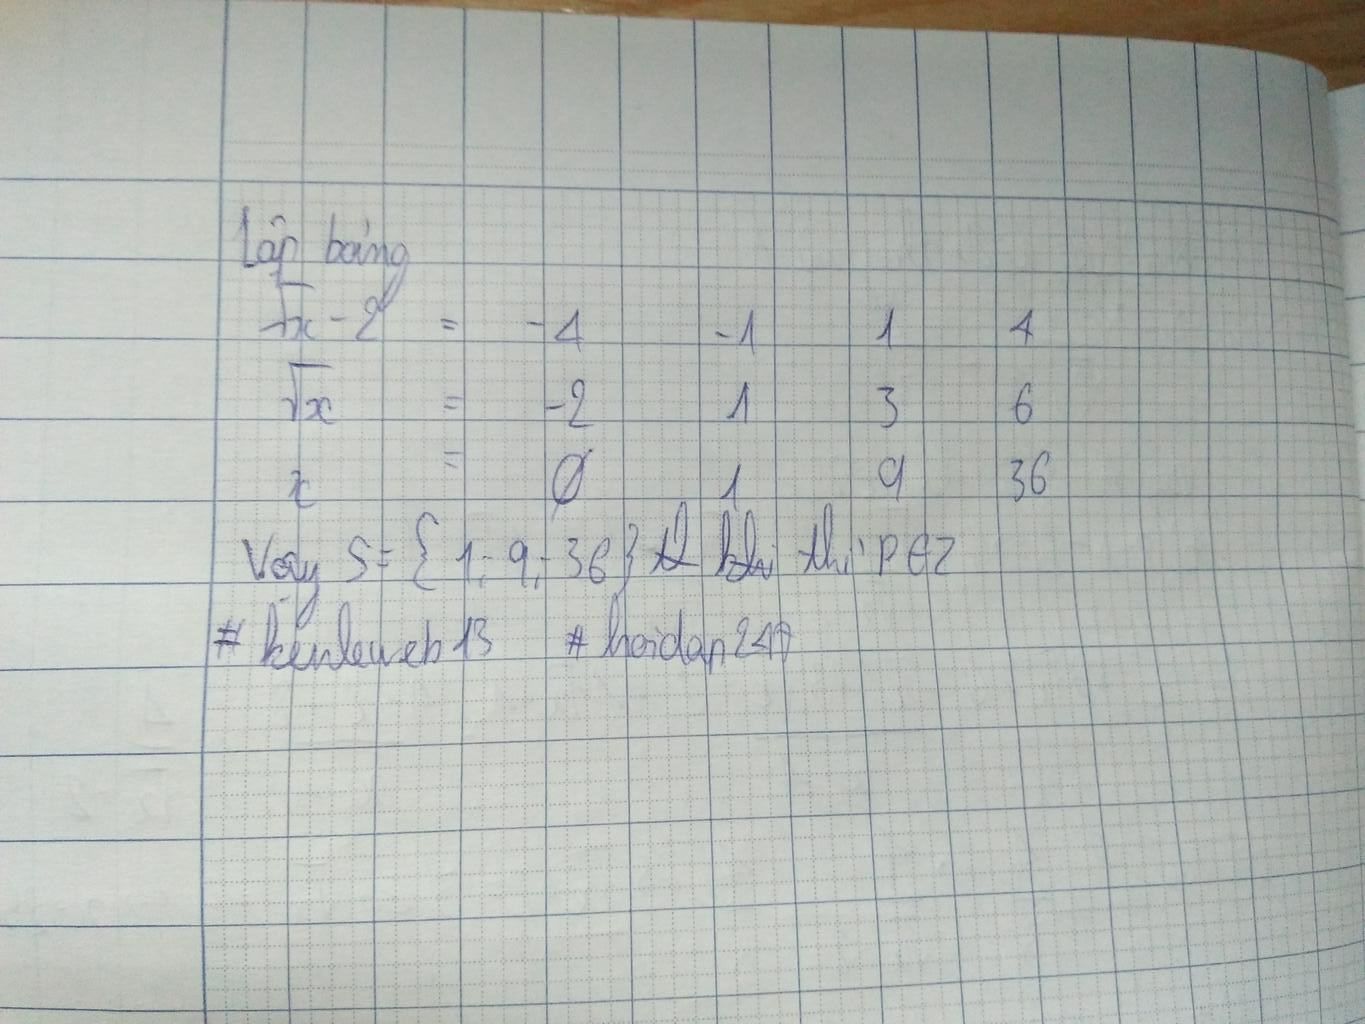 Lập bảng
√x - 2 = -4 -1 1 4
√x = -2 1 3 6
x = ∅ 1 9 36
Vậy S = { 1; 9; 36 } khi thì P ∈ Z
# kenleweb13 # hoidap247